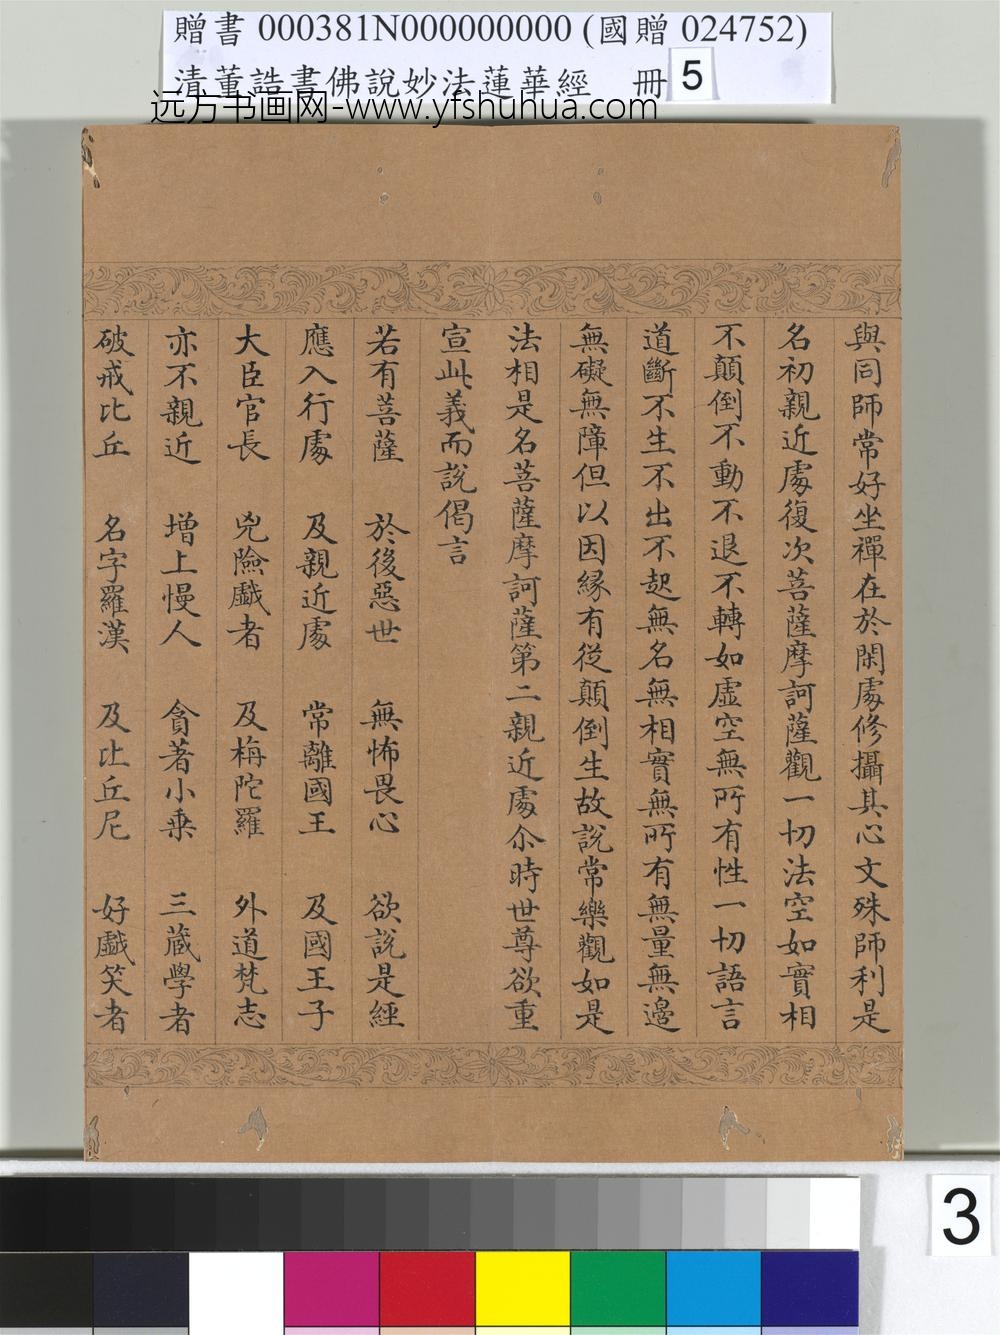 贈書 000381N000000000 (國贈 024752)
清董誥書佛說妙法蓮華經 冊 5
远方书画网-www.yfshuhua.com
與同師常好坐禪在於閑處修攝其心文殊師利是
名初親近處復次菩薩摩訶薩觀一切法空如實相
不顛倒不動不退不轉如虛空無所有性一切語言
道斷不生不出不起無名無相實無所有無量無邊
無礙無障但以因緣有從顛倒生故說常樂觀如是
法相是名菩薩摩訶薩第二親近處尒時世尊欲重
宣此義而說偈言
若有菩薩 於後惡世 無怖畏心 欲說是經
應入行處 及親近處 常離國王 及國王子
大臣官長 兇險戲者 及栴陀羅 外道梵志
亦不親近 增上慢人 貪著小乘 三藏學者
破戒比丘 名字羅漢 及比丘尼 好戲笑者
3